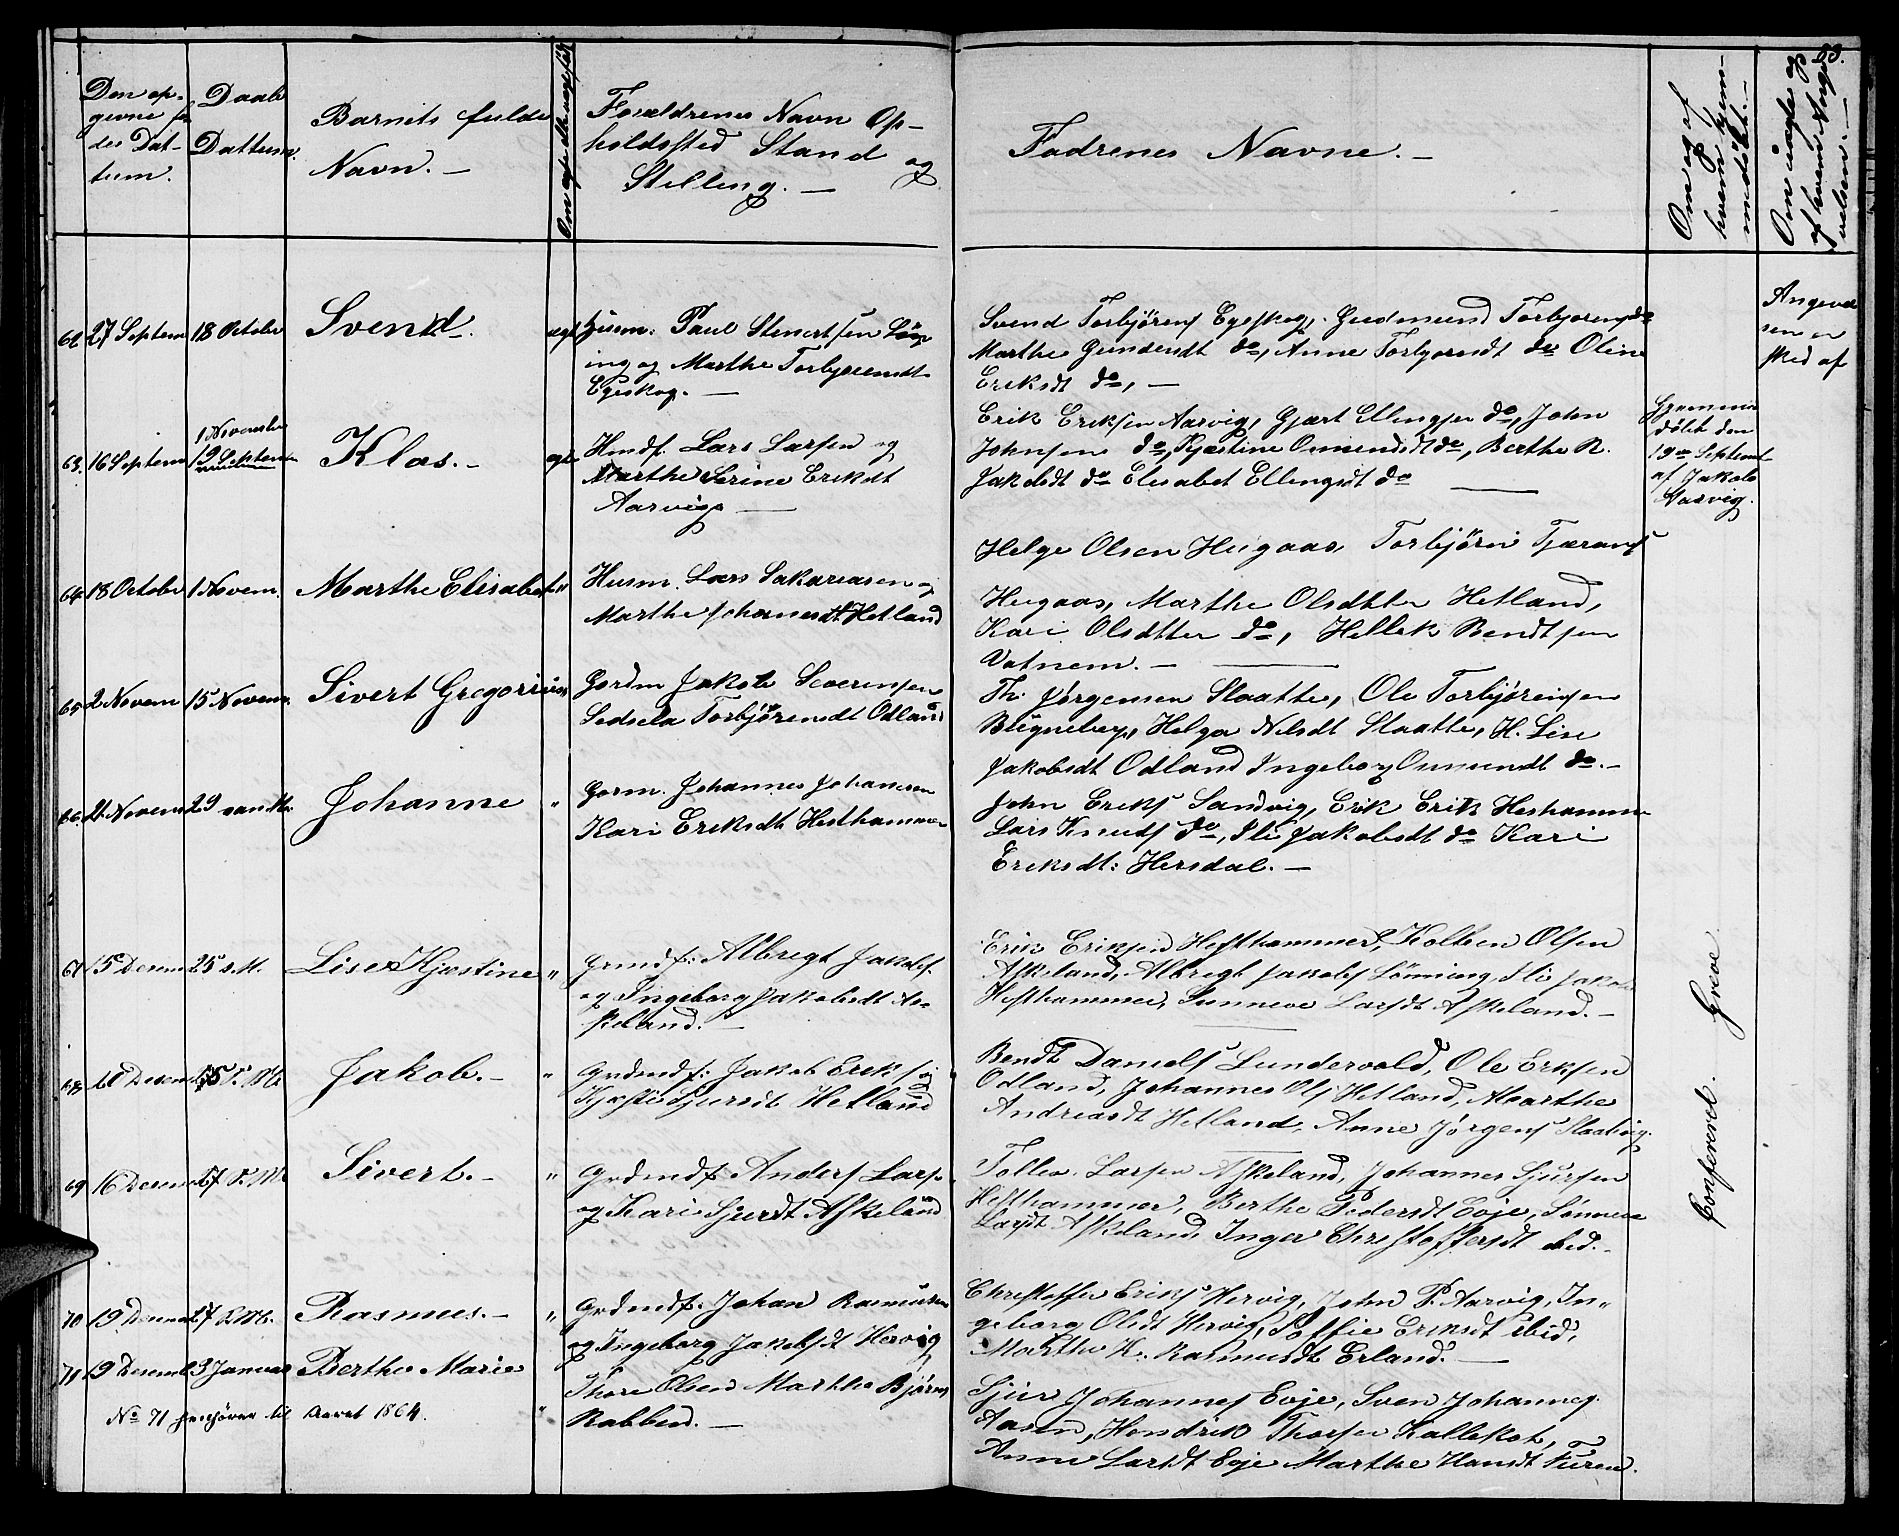 53.
Den op-
gevne fø
des Dat-
tum.
Daab
Dattum.
Barnets fulde
Navn. —
Om ægte eller uægte
Forældrenes Navn Op-
holdssted Stand og
Stilling. —
Fadrenes Navne. —
Om og af
hvem hjem-
medöbt. —
Om uægte og
af hvem Angi-
velsen. —
62. 27 Septem 18 October Svend. egt Husm: Paul Stenertsen
ing og Marthe Torbjørensdt
Egeskog. —
Svend Torbjørens Egeskog, Gudmund Torbjorens do
Marthe Gundersdt do, Anne Torbjornsdt do Oline
Eriksdt do, —
Angevel
sen er
sked af
63. 16 Septem 1 November
19 Septem Klas. — Hmdf. Lars Larsen og
Marthe Serine Eriksdt
Aarvig —
Erik Eriksen Aarvig, Gjert Ellingsen do, John
Johnsen do, Kjestine Osmundsdt do, Berthe R.
Jakobsdt do Elisabet Ellingsdt do —
Hjemme
döbt den
19de Septemb
af Jakob
Aarvig.
64. 18 October 1 Novem. Marthe Elisabet " Husm. Lars Sakariasen og
Marthe Johanesdt Hetland
Helge Olsen Heigaas, Torbjørn Tjerans
Heigaas, Marthe Olsdtter Hetland,
Kari Olsdtter do, Hellek Bendtsen
Vatnem. —
65. 2 Novem 15 Novem. Sivert Gregorius Gordm Jakob Severinsen
Sedsela Torbjørensdt Odland
Th. Jørgensen Slaatte, Ole Torbjørensen
Bugneberg, Helga Nilsdt Slaatte, H. Lise
Jakobsdt Odland Ingeborg Osmundt do. —
66. 21 Novem 29 Johanne " Gorm. Johannes Johanesen
Kari Eriksdt Hesthammer
John Eriks Sandvig, Erik Erik Heshamme
Lars Knuds do, Ili Jakobsdt do Kari
Eriksdt: Hersdal. —
67. 15 Decem 25 s.M. Lise Kjestine " Grmdf: Albregt Jakobs.
og Ingeborg Jakobsdt As-
keland. —
Erik Eriksen Hesthammer, Kolben Olsen
Askeland, Albregt Jakobs Lönning, Ili Jakobs
Hesthammer, Sunneve Larsdt Askeland. —
68. Desem S. Mt. Jakob. — " Grdmdf: Jakob Eriks og
Sjursdt Hetland
Bendt Daniels Lundervold, Ole Eriksen
Odland, Johannes Ols Hetland, Marthe
Andreasdt Hetland, Anne Jørgens
69 16 Decem 27 S. M. Sivert. — " Grdmdf. Anders Lars
og Kari Sjursdt Askeland
Tollev. Larsen Askeland, Johannes Sjursen
Hesthammer, Berthe Pedersdt Evje, Sonneve
Larsdt Askeland, Inger Christoffersdt ibid. —
70 19 Decem 27 S. Mt. Rasmus. — " Grdmdf. Johan Rasmusen
og Ingeborg Jakobsdt Hervig
Christoffer Eriks Hervig, John P. Aarvig, In-
geborg Olsdt Hervig, Soffie Eriksdt ibid,
Marthe K. Rasmusdt Erland. —
71 19 Desemb 3 Januar Berthe Marie " Thore Olsen Marthe Bjørns
Rabben. —
No 71 henhører til Aaret 1864.
Sjur Johannes Evje, Sven Johannes.
Aasen, Hendrik Thorsen Kallekot,
Anne Larsdt Evje Marthe Hansdt Furen.
Confereret. Greve.